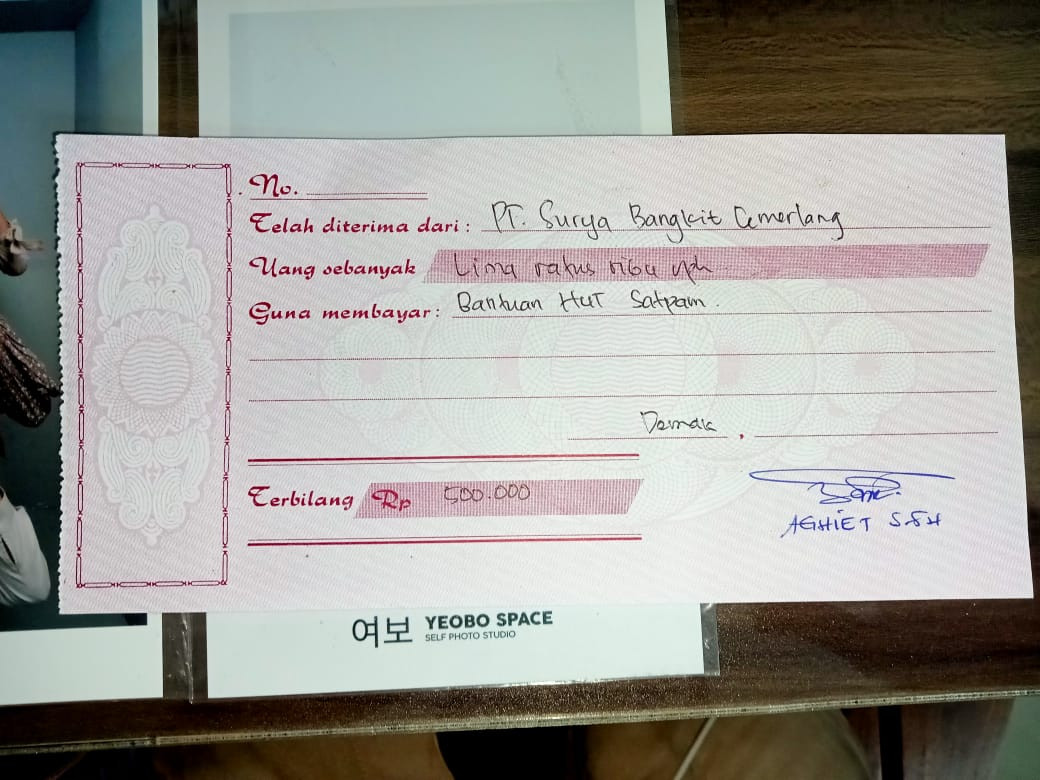 No.
Telah diterima dari : PT. Surya Bangkit Cemerlang
Uang sebanyak Lima ratus ribu rph.
Guna membayar : Bantuan HUT Satpam.
Demak ,
Terbilang Rp 500.000
AGHIET S.SH
여보 YEOBO SPACE
SELF PHOTO STUDIO